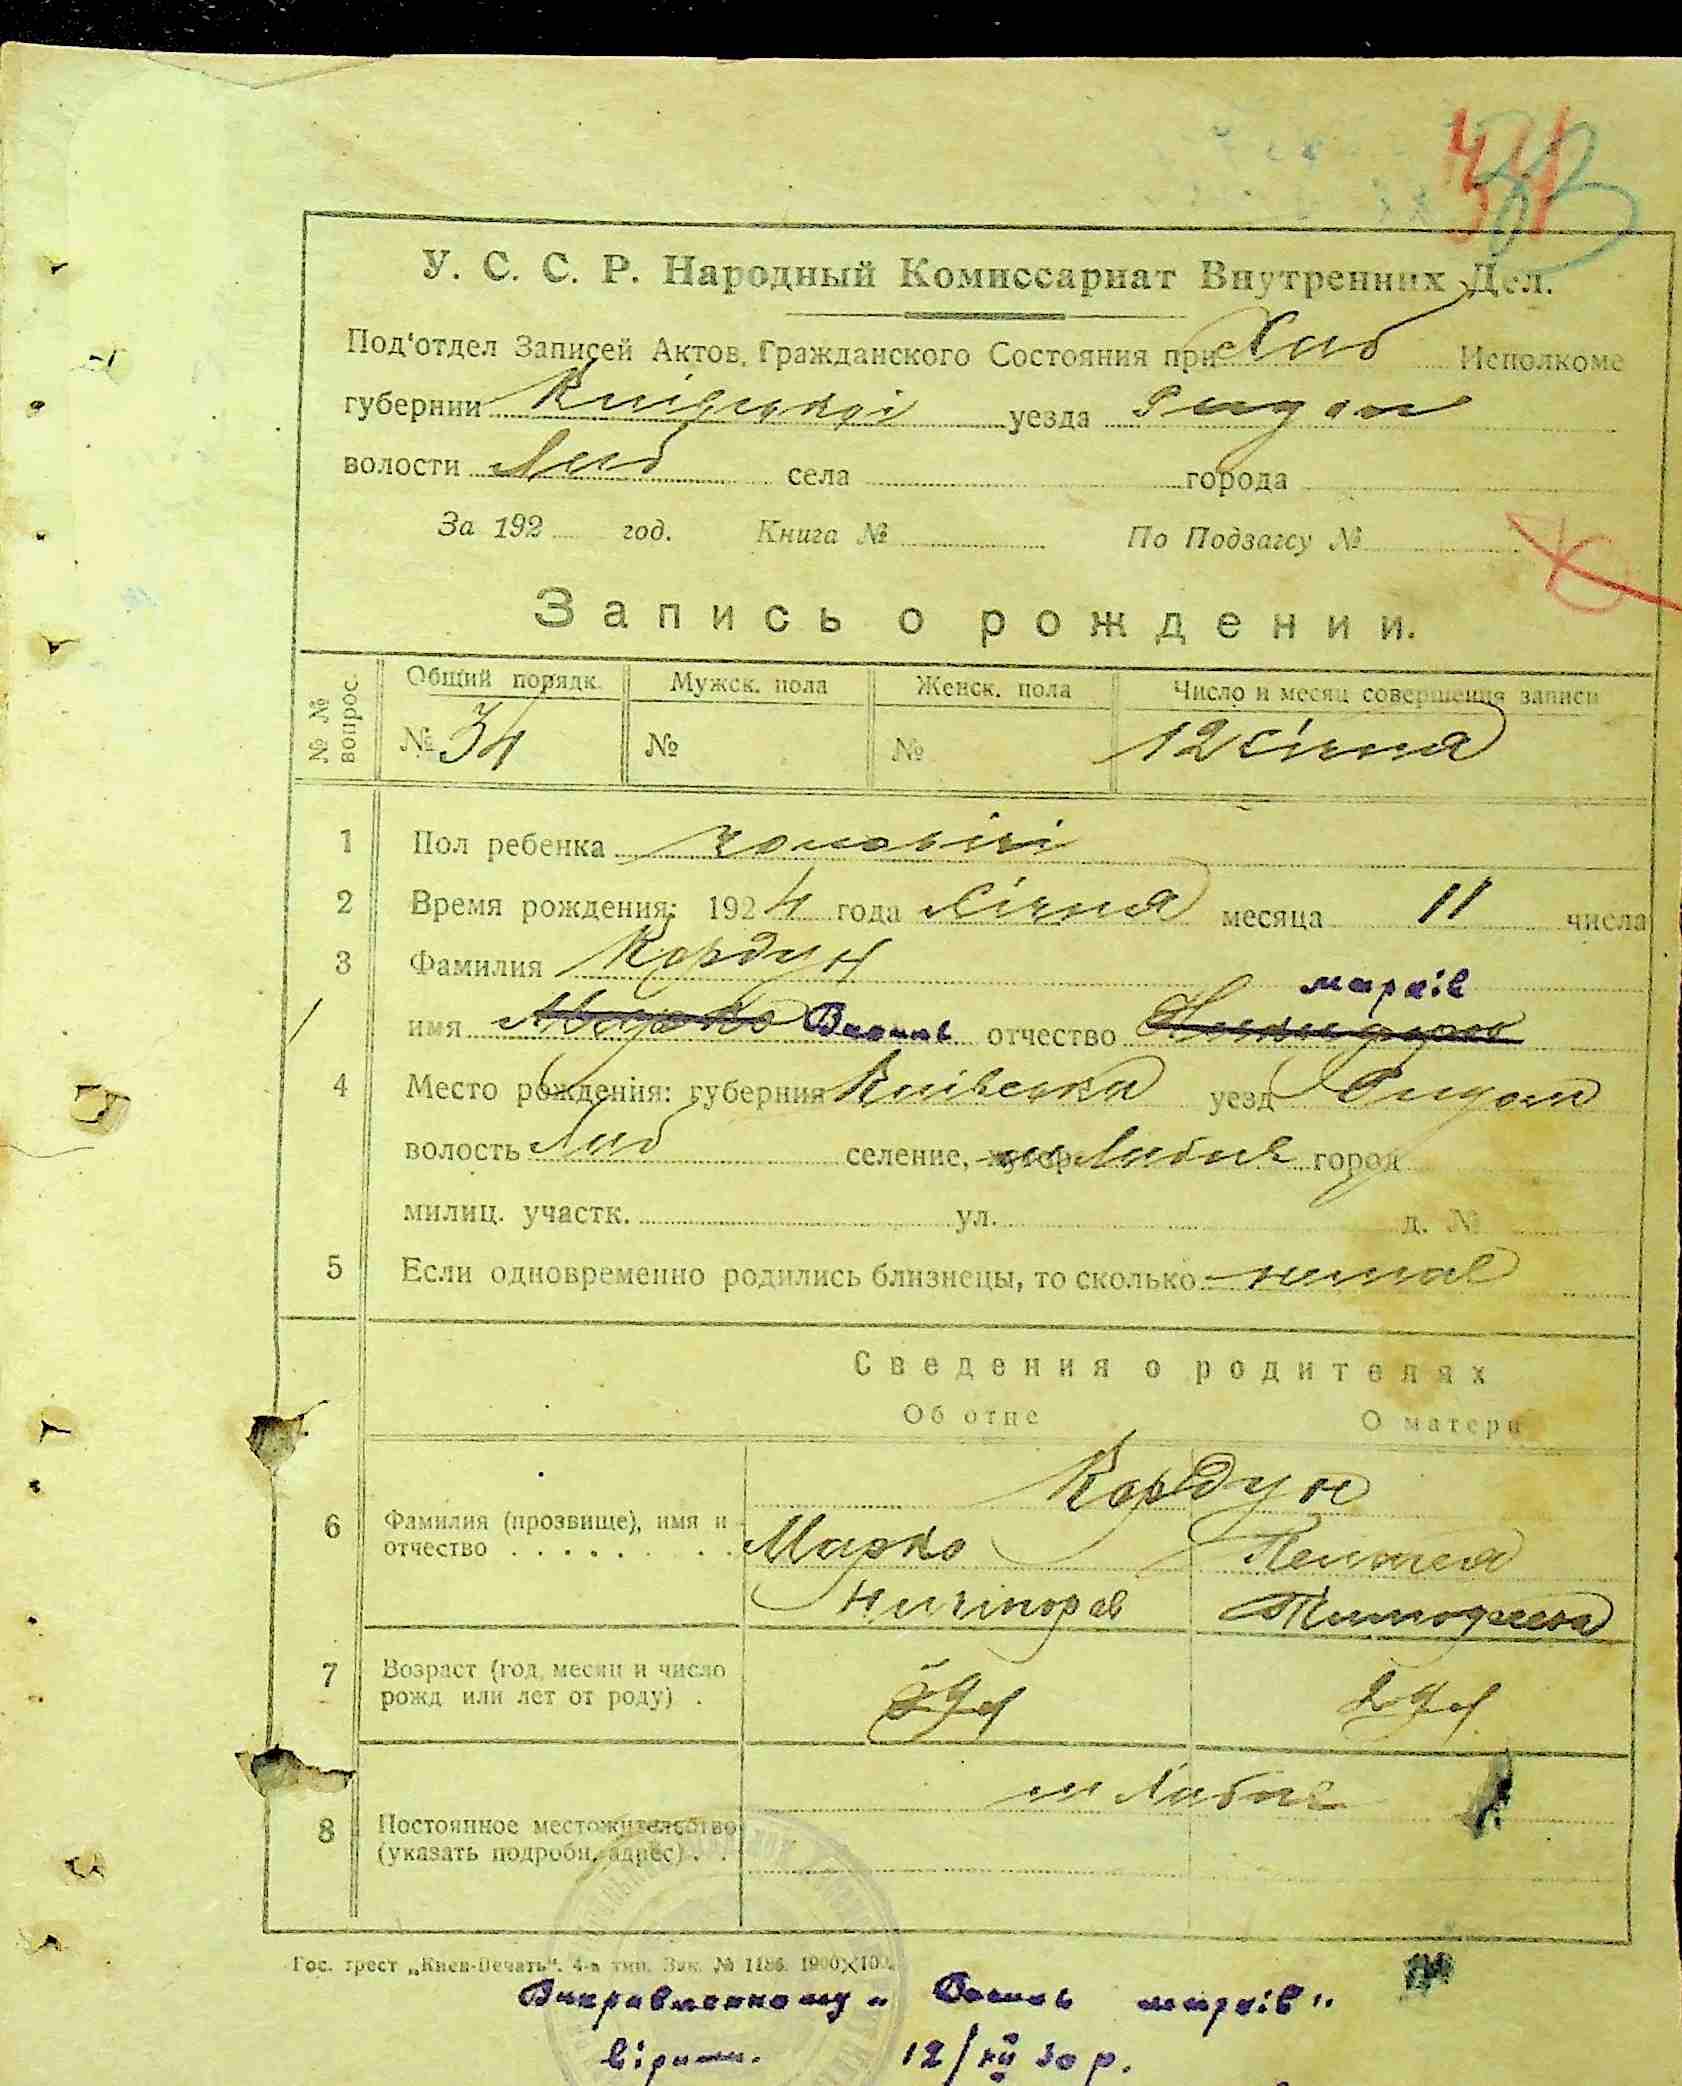 У. С. С. Р. Народный Комиссариат Внутренних Дел.
Под'отдел Записей Актов Гражданского Состояния при Хаб Исполкоме
губернии Київської уезда
волости Хаб села города
За 192 год. Книга № По Подзагсу №
Запись о рождении.
№ № вопрос. Общий порядк. Мужск. пола Женск. пола Число и месяц совершения записи
№ 34 № № 12 січня
1 Пол ребенка чоловічі
2 Время рождения: 1924 года Січня месяца 11 числа
3 Фамилия Кордун
марків
имя Марко Василь отчество
4 Место рождения: губерния Київська уезд
волость Хаб селение, хутор м Хабне город
милиц. участк. ул. д. №
5 Если одновременно родились близнецы, то сколько немає
Сведения о родителях
Об отце О матери
Кордун
6 Фамилия (прозвище), имя и Марко
отчество Ничипорів Тимофеева
7 Возраст (год, месяц и число
рожд или лет от роду) 29 29
м Хабне
8 Постоянное местожительство
(указать подробн. адрес)
Гос. трест „Киев-Печать". 4-я тип. Зак. № 1186. 1900×100.
Виправленному „Василь марків"
вірити. 12/XII 30 р.